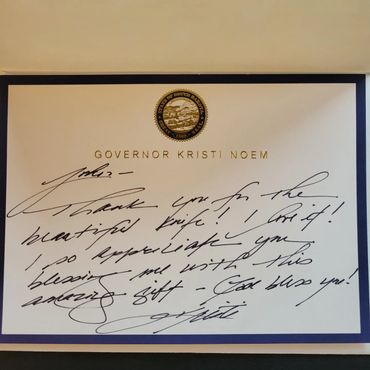 GOVERNOR KRISTI NOEM
Thank you for the
beautiful knife! I love it!
I so appreciate you
blessing me with this
amazing gift - God bless you!
Kristi